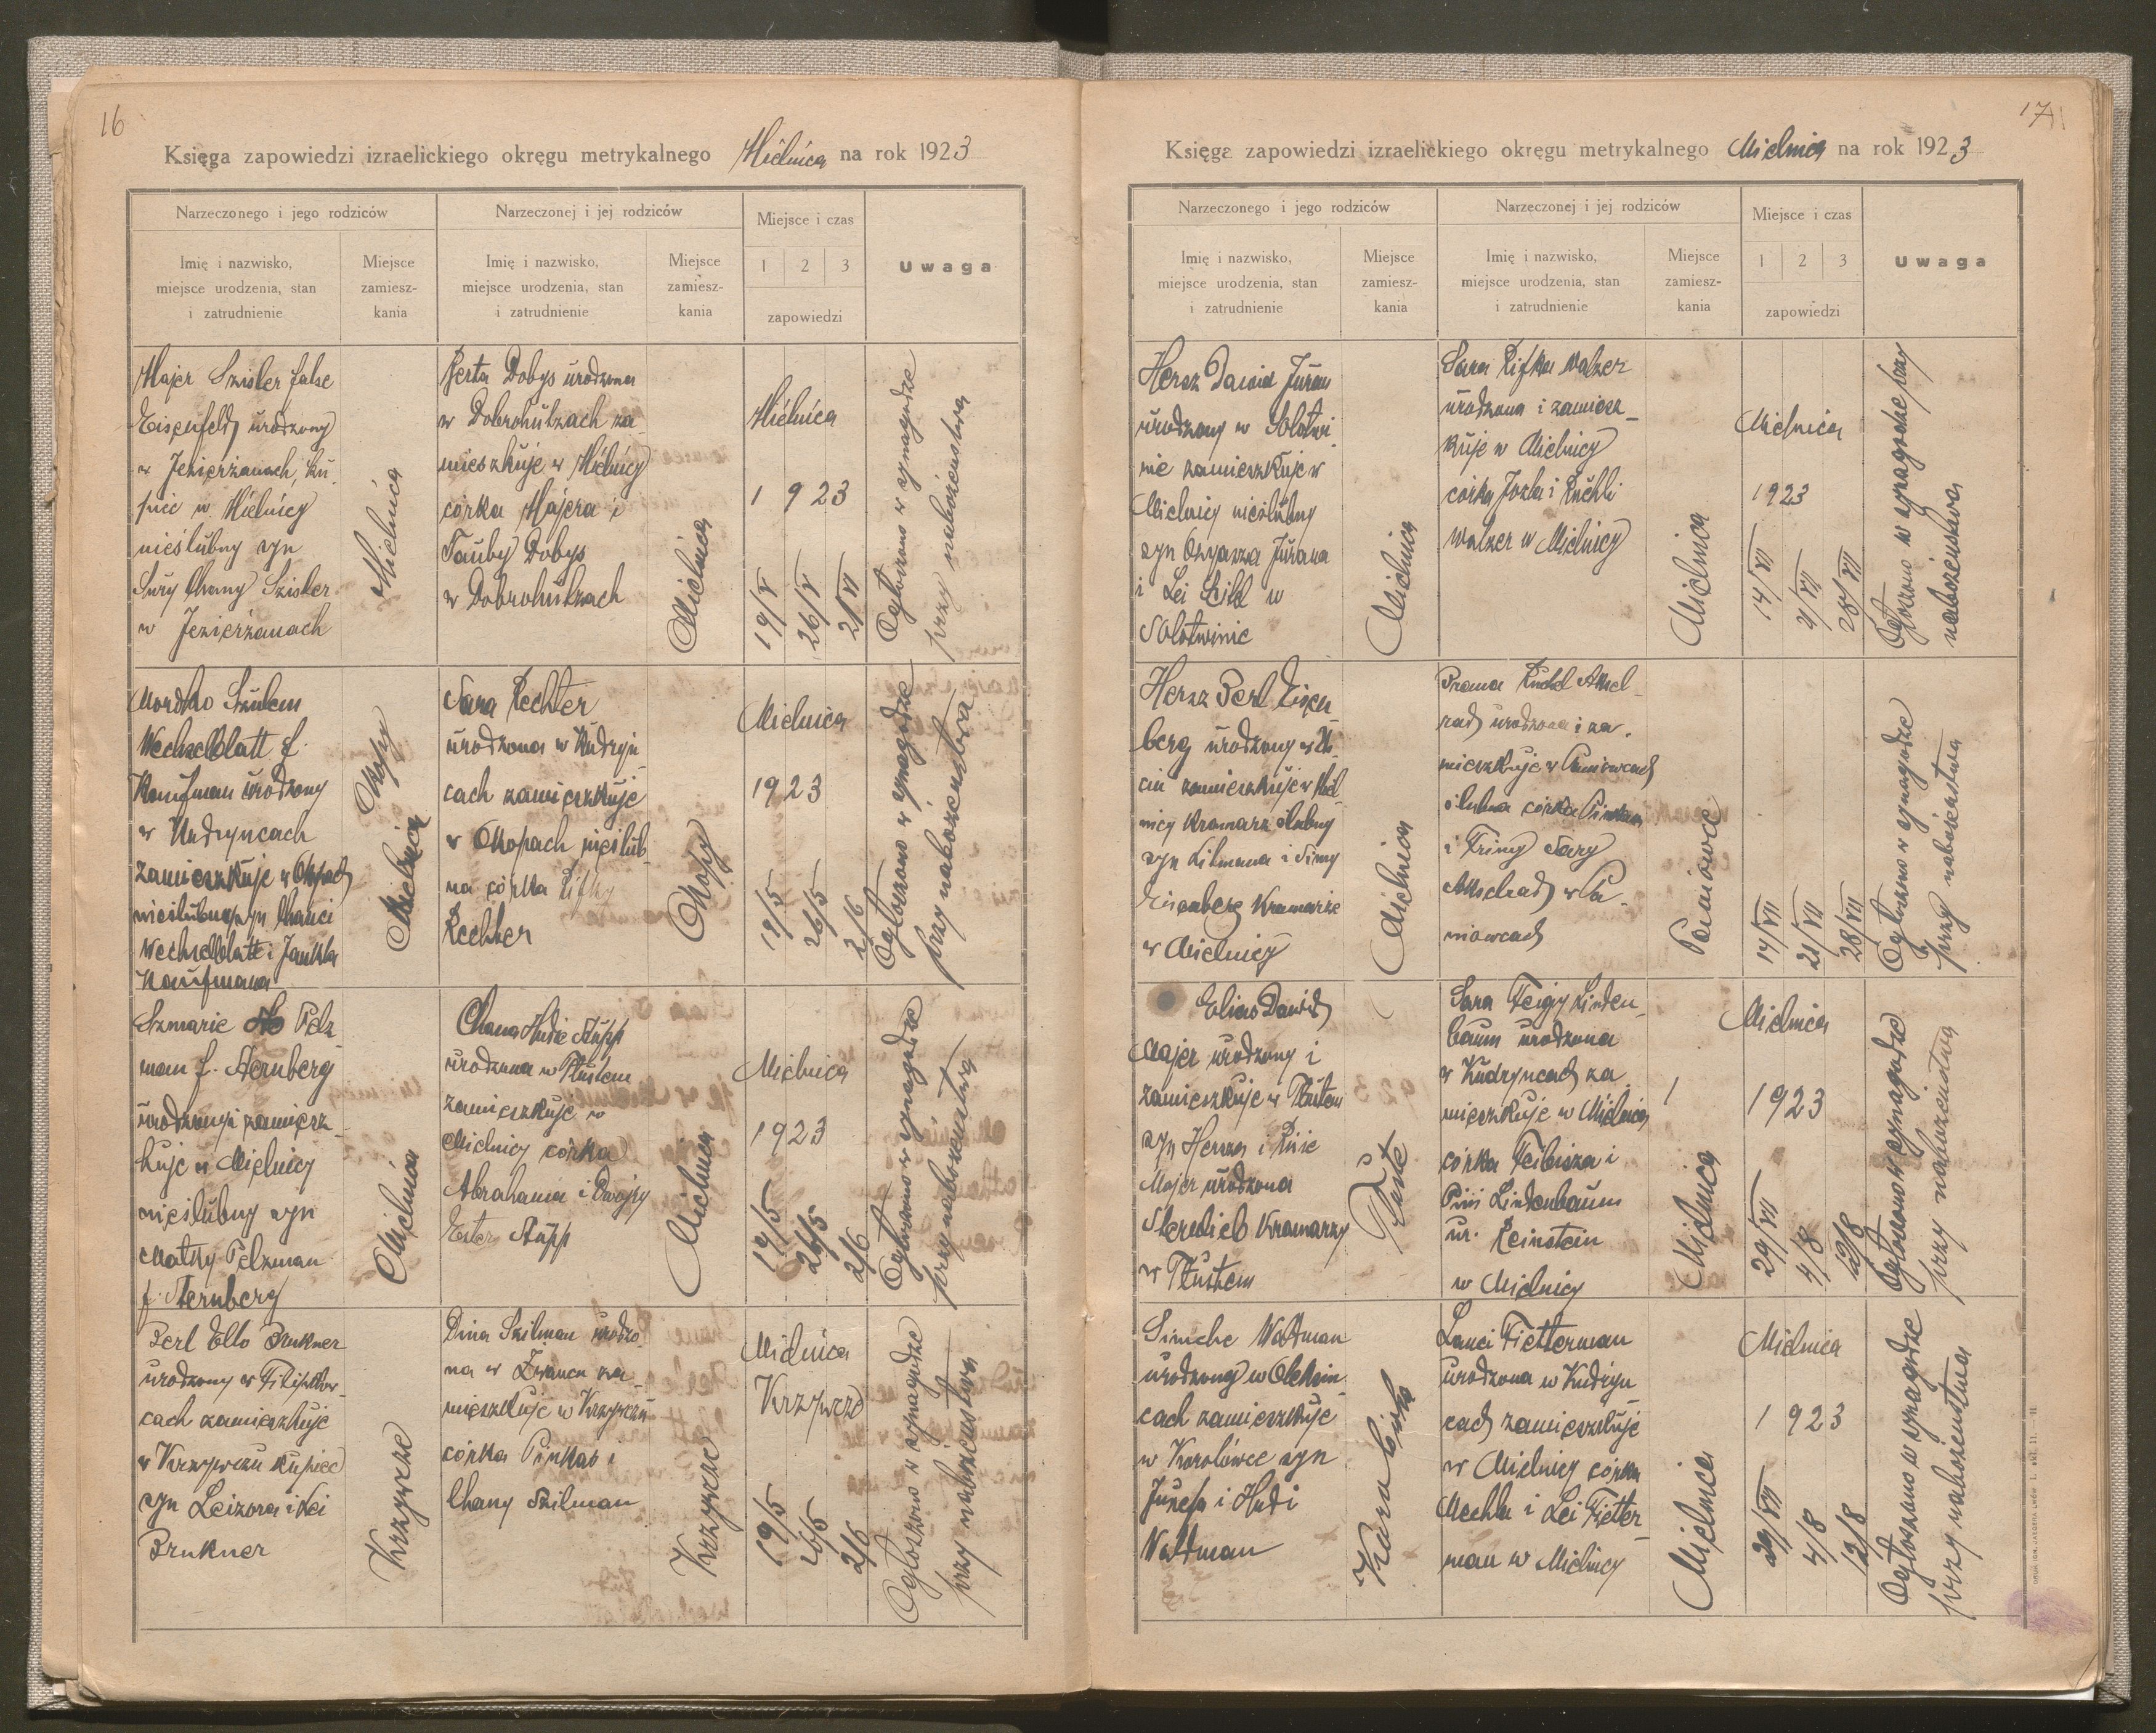 16
Księga zapowiedzi izraelickiego okręgu metrykalnego Mielnica na rok 1923
Narzeczonego i jego rodziców
Narzeczonej i jej rodziców
Miejsce i czas
Uwaga
Imię i nazwisko,
miejsce urodzenia, stan
i zatrudnienie
Miejsce
zamiesz-
kania
Imię i nazwisko,
miejsce urodzenia, stan
i zatrudnienie
Miejsce
zamiesz-
kania
1 2 3
zapowiedzi
Majer Szisler false
Eisenfeld urodzony
w Jezierzanach, ku-
piec w Mielnicy
nieślubny syn
Sury Chany Szisler
w Jezierzanach
Mielnica
Berta Dobys urodzona
w Dobrohutzach za-
mieszkuje w Mielnicy
córka Majera i
Tauby Dobys
w Dobrohutzach
Mielnica
Mielnica
1923
19/V
26/V
2/VI
Ogłoszono w synagodze
przy nabożeństwa
Mordko Szulem
Wechselblatt f.
Kaufman urodzony
w Kudryncach
zamieszkuje w Okopach
nieślubny syn Chanci
Wechselblatt i Jankla
Kaufmana
Okopy
Mielnica
Sara Rechter
urodzona w Kudryn-
cach zamieszkuje
w Okopach nieślub-
na córka Rifky
Rechter
Okopy
Mielnica
1923
19/5
26/5
2/6
Ogłoszono w synagodze
przy nabożeństwa
Szmarie Pelz-
man f. Sternberg
urodzony i zamiesz-
kuje w Mielnicy
nieślubny syn
Matky Pelzman
f. Sternberg
Mielnica
Chana Hudie Stupp
urodzona w Tłustem
zamieszkuje w
Mielnicy córka
Abrahama i Dwojry
Ester Stupp
Mielnica
Mielnica
1923
19/5
26/5
2/6
Ogłoszono w synagodze
przy nabożeństwa
Berl Ello Brukner
urodzony w Filipkow-
cach zamieszkuje
w Krzywczu kupiec
syn Leizora i Lei
Brukner
Krzywcze
Dina Szilman urodzo-
na w Żwancu za-
mieszkuje w Krzywczu
córka Pinkas i
Chany Szilman
Krzywcze
Mielnica
Krzywcze
19/5
26/5
2/6
Ogłoszono w synagodze
przy nabożeństwa
17
Księga zapowiedzi izraelickiego okręgu metrykalnego Mielnica na rok 1923
Narzeczonego i jego rodziców
Narzeczonej i jej rodziców
Miejsce i czas
Uwaga
Imię i nazwisko,
miejsce urodzenia, stan
i zatrudnienie
Miejsce
zamiesz-
kania
Imię i nazwisko,
miejsce urodzenia, stan
i zatrudnienie
Miejsce
zamiesz-
kania
1 2 3
zapowiedzi
Hersz Dawid Juran
urodzony w Sołotwi-
nie zamieszkuje w
Mielnicy nieślubny
syn Jurana
i Lei w
Sołotwinie
Mielnica
Sara Rifka Walzer
urodzona i zamiesz-
kuje w Mielnicy
córka Jozla i Ruchli
Walzer w Mielnicy
Mielnica
Mielnica
1923
14/VII
28/VII
Ogłoszono w synagodze przy
nabożeństwa
Hersz Berl Eisen-
berg urodzony w Us-
ciu zamieszkuje w Miel-
nicy kramarz ślubny
syn Zilmana i Simy
Eisenberg kramarze
w Mielnicy
Mielnica
Ruchel Aksel-
rad urodzona i za-
mieszkuje w Paniowcach
ślubna córka Pinkasa
i Frimy Sary
Akselrad w Pa-
niowcach
Paniowce
14/VII
21/VII
28/VII
Ogłoszono w synagodze
przy nabożeństwa
Elias Dawid
Majer urodzony i
zamieszkuje w Tłustem
syn Hersza i
Majer urodzona
kramarzy
w Tłustem
Tłuste
Sara Feigy Linden-
baum urodzona
w Kudryncach za-
mieszkuje w Mielnicy
córka Feibisza i
Pini Lindenbaum
ur. Reinstein
w Mielnicy
Mielnica
Mielnica
1923
29/VII
4/8
12/8
Ogłoszono w synagodze
przy nabożeństwa
Simche Waltman
urodzony w Oleksin-
cach zamieszkuje
w Korolówce syn
Juzefa i Hudi
Waltman
Lanci Fietterman
urodzona w Kudryn-
cach zamieszkuje
w Mielnicy córka
Mechla i Lei Fietter-
man w Mielnicy
Mielnica
Mielnica
1923
29/VII
4/8
12/8
Ogłoszono w synagodze
przy nabożeństwa